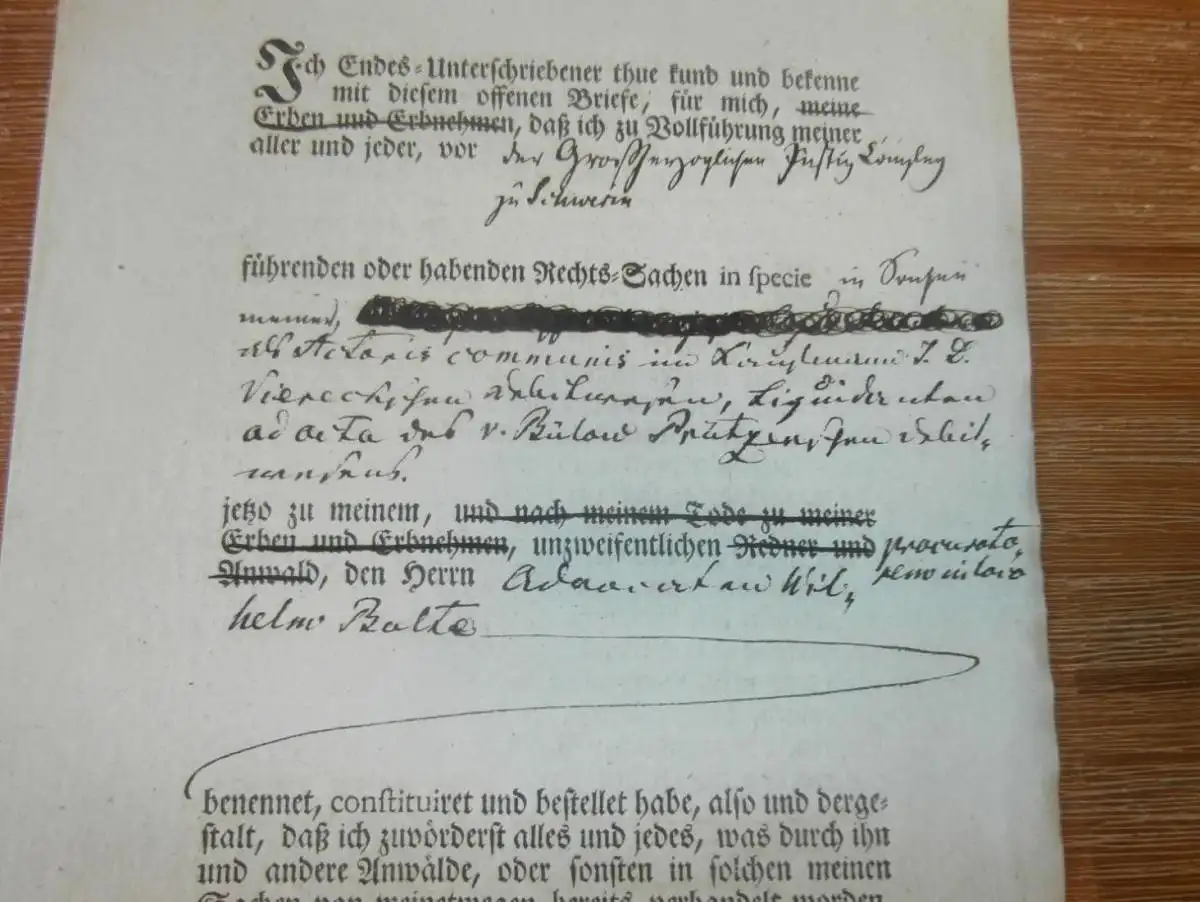 Ich Endes-Unterschriebener thue kund und bekenne
mit diesem offenen Briefe, für mich, meine
Erben und Erbnehmen, daß ich zu Vollführung meiner
aller und jeder, vor der Großherzoglichen Justiz Canzley
zu Schwerin
führenden oder habenden Rechts-Sachen in specie in Sachen
meiner,
als Actoris communis im Kaufmann J. D.
Viereckschen Debitwesen, Liquidanten
ad acta des v. Bülow Prützenschen Debit-
wesens.
jetzo zu meinem, und nach meinem Tode zu meiner
Erben und Erbnehmen, unzweifentlichen Redner und procurato-
Anwald, den Herrn Advocaten Wil-
helm Bolte
benennet, constituiret und bestellet habe, also und derge-
stalt, daß ich zuvörderst alles und jedes, was durch ihn
und andere Anwälde, oder sonsten in solchen meinen
Sachen von meinetwegen bereits verhandelt worden